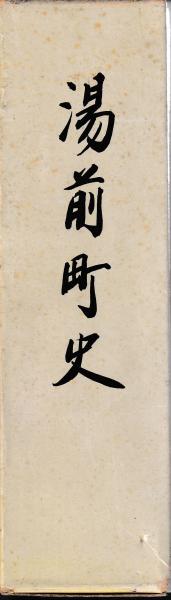 湯前町史